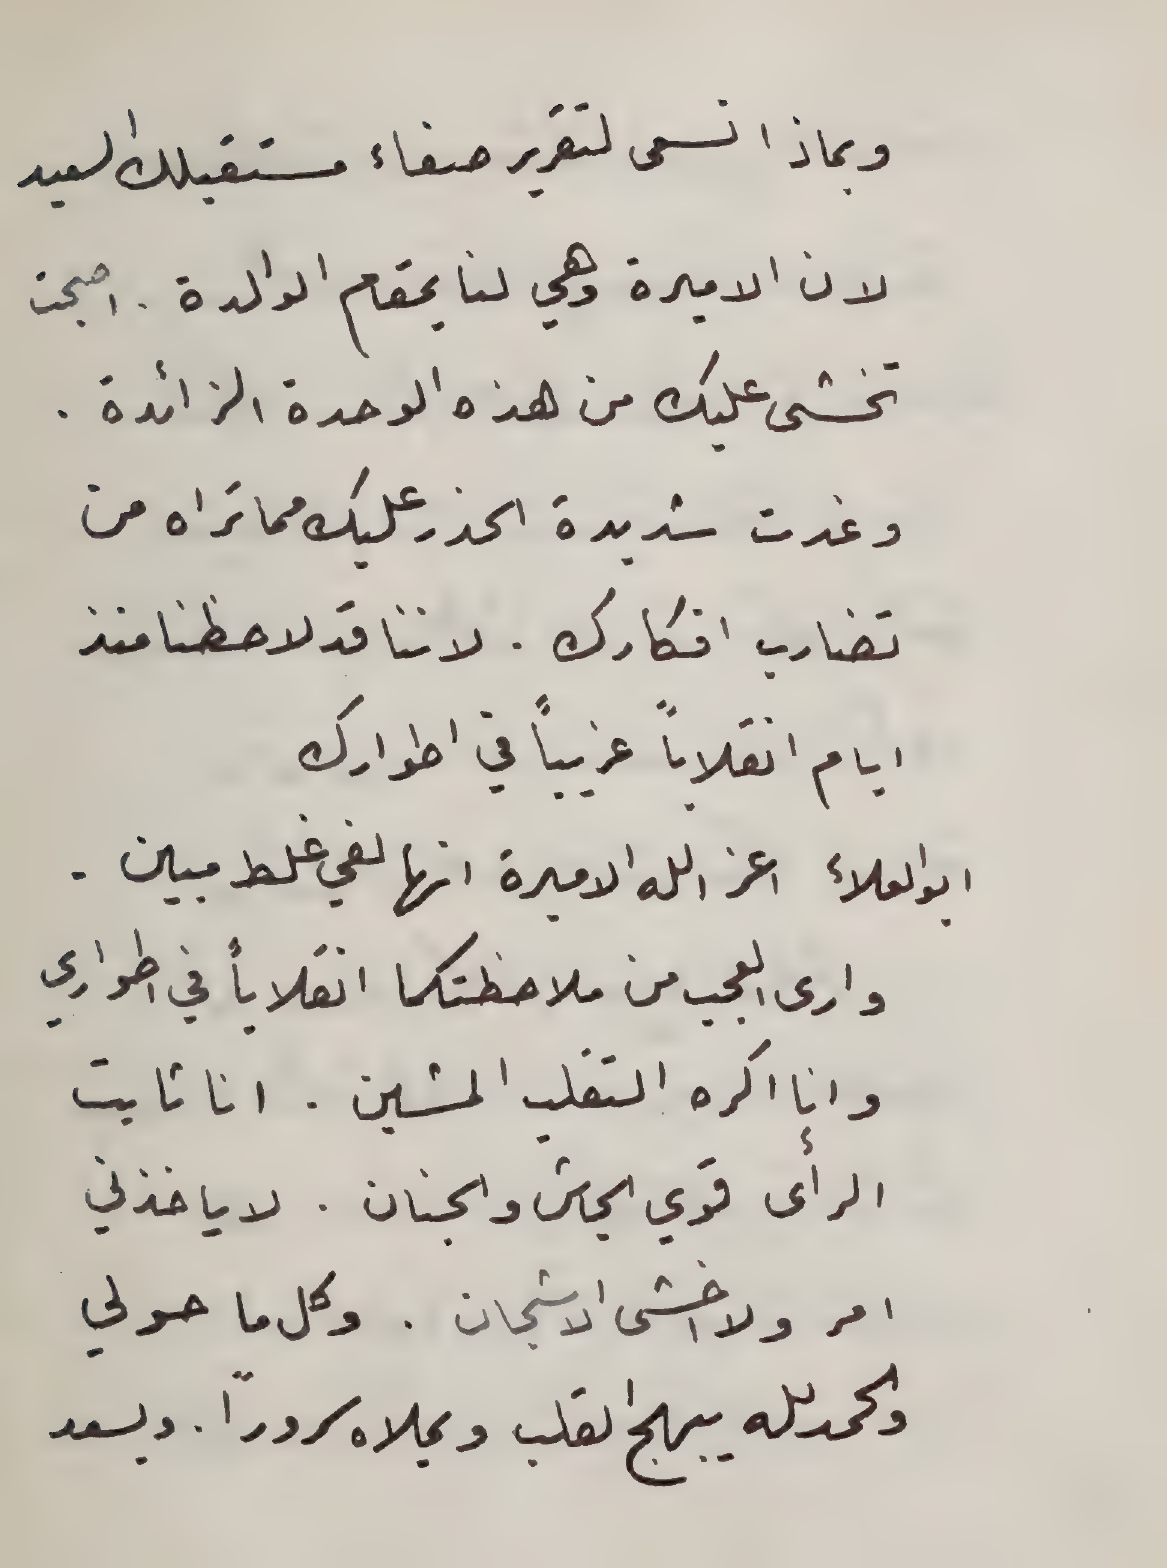 وبماذا نسعى لتقرير صفاء مستقبلك السعيد
لان الاميرة وهي لنا بمقام الوالدة . اصبحت
تخشى عليك من هذه الوحدة الزائدة .
وغدت شديدة الحذر عليك مما تراه من
تضارب افكارك . لاننا قد لاحظنا منذ
ايام انقلاباً غريباً في اطوارك
ابو العلاء اعز الله الاميرة انها لفي غلط مبين .
وارى العجب من ملاحظتكما انقلاباً في اطواري
وانا اكره التقلب المشين . انا ثابت
الرأى قوي الجاش والجنان . لا ياخذني
امر ولا اخشى الاشجان . وكل ما حولي
والحمد لله يبهج القلب ويملاه سروراً . ويسعد